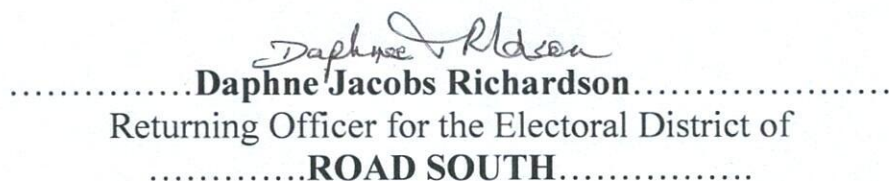 ...............Daphne Jacobs Richardson.....................
Returning Officer for the Electoral District of
.............ROAD SOUTH................